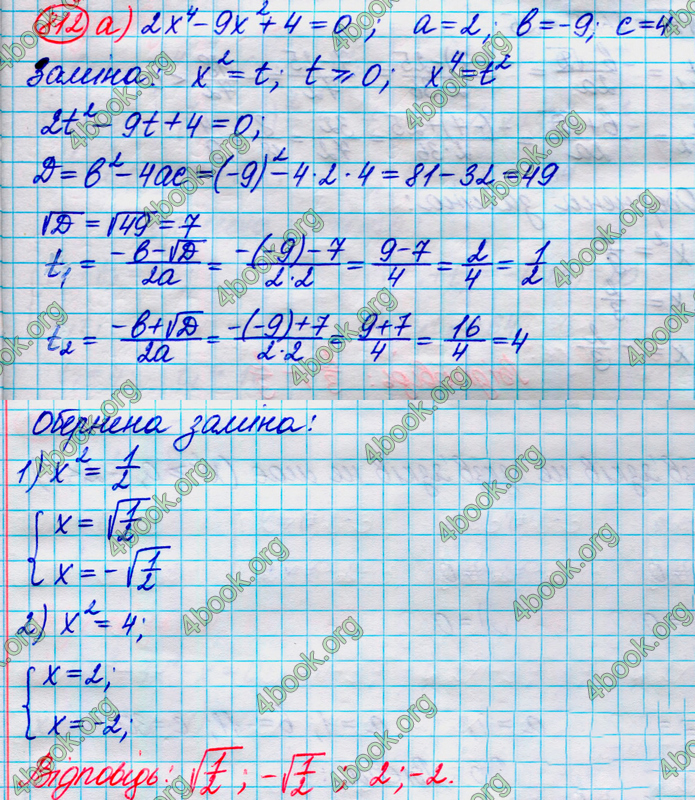 812) а) 2x⁴ - 9x² + 4 = 0; a = 2; b = -9; c = 4
Заміна: x² = t; t ⩾ 0; x⁴ = t²
2t² - 9t + 4 = 0;
D = b² - 4ac = (-9)² - 4·2·4 = 81 - 32 = 49
√D = √49 = 7
t₁ = (-b - √D)/(2a) = (-(-9) - 7)/(2·2) = (9 - 7)/4 = 2/4 = 1/2
t₂ = (-b + √D)/(2a) = (-(-9) + 7)/(2·2) = (9 + 7)/4 = 16/4 = 4
Обернена заміна:
1) x² = 1/2
{ x = √(1/2)
x = -√(1/2)
2) x² = 4;
{ x = 2;
x = -2;
Відповідь: √(1/2); -√(1/2); 2; -2.
4book.org